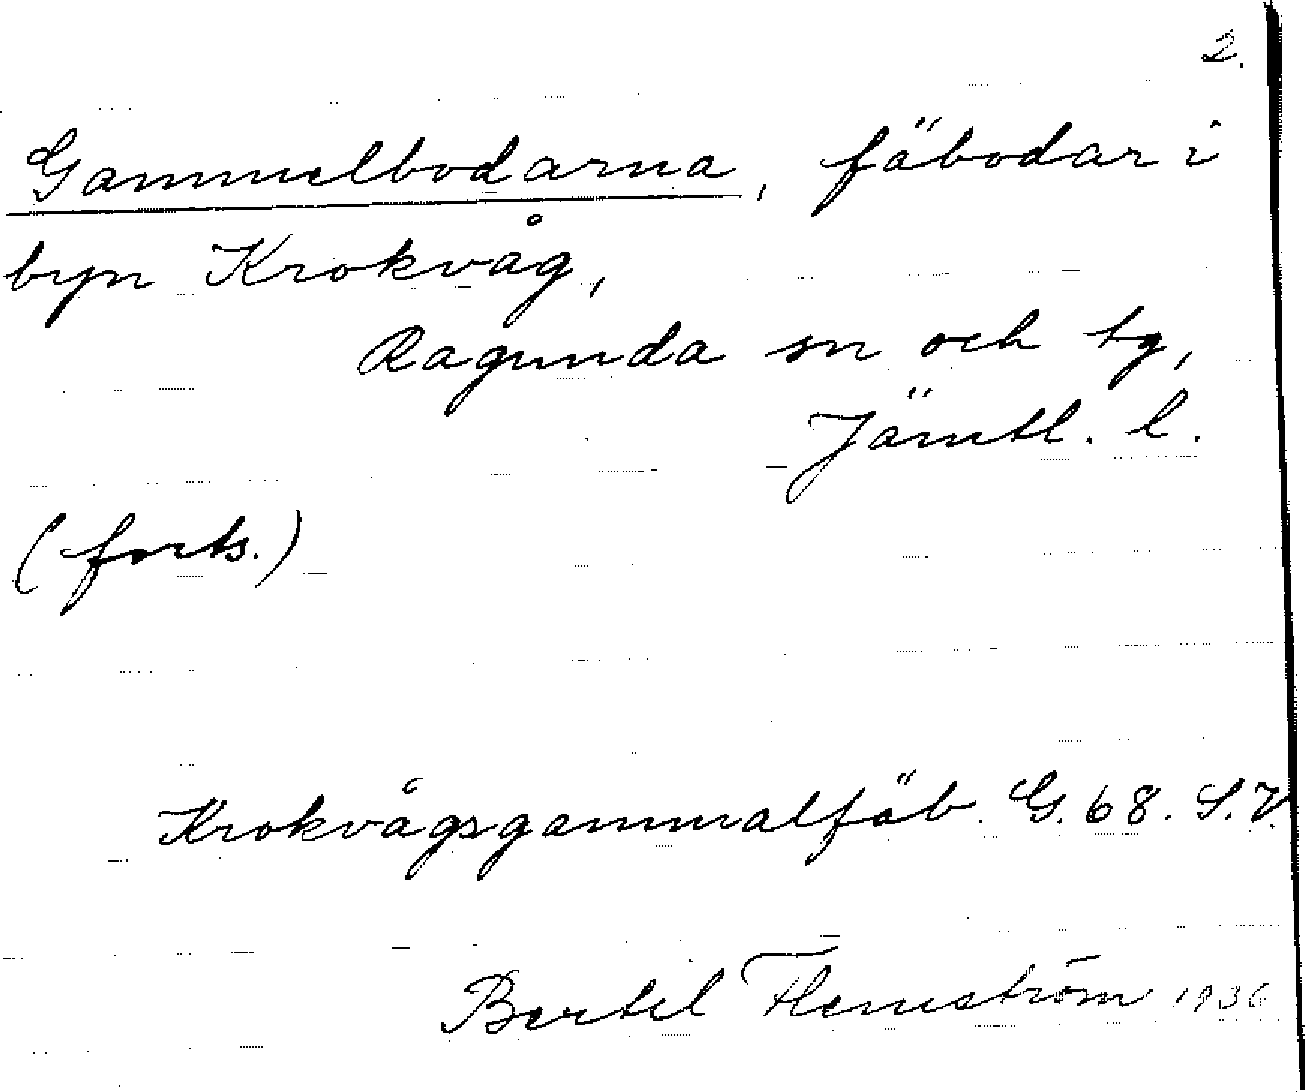 2.
Gammelbodarna, fäbodar i
byn Krokvåg,
Ragunda sn och tg,
Jämtl. l.
(forts.)
Krokvågsgammalfäb. G. 68. S.V.
Bertel Flemström 1936